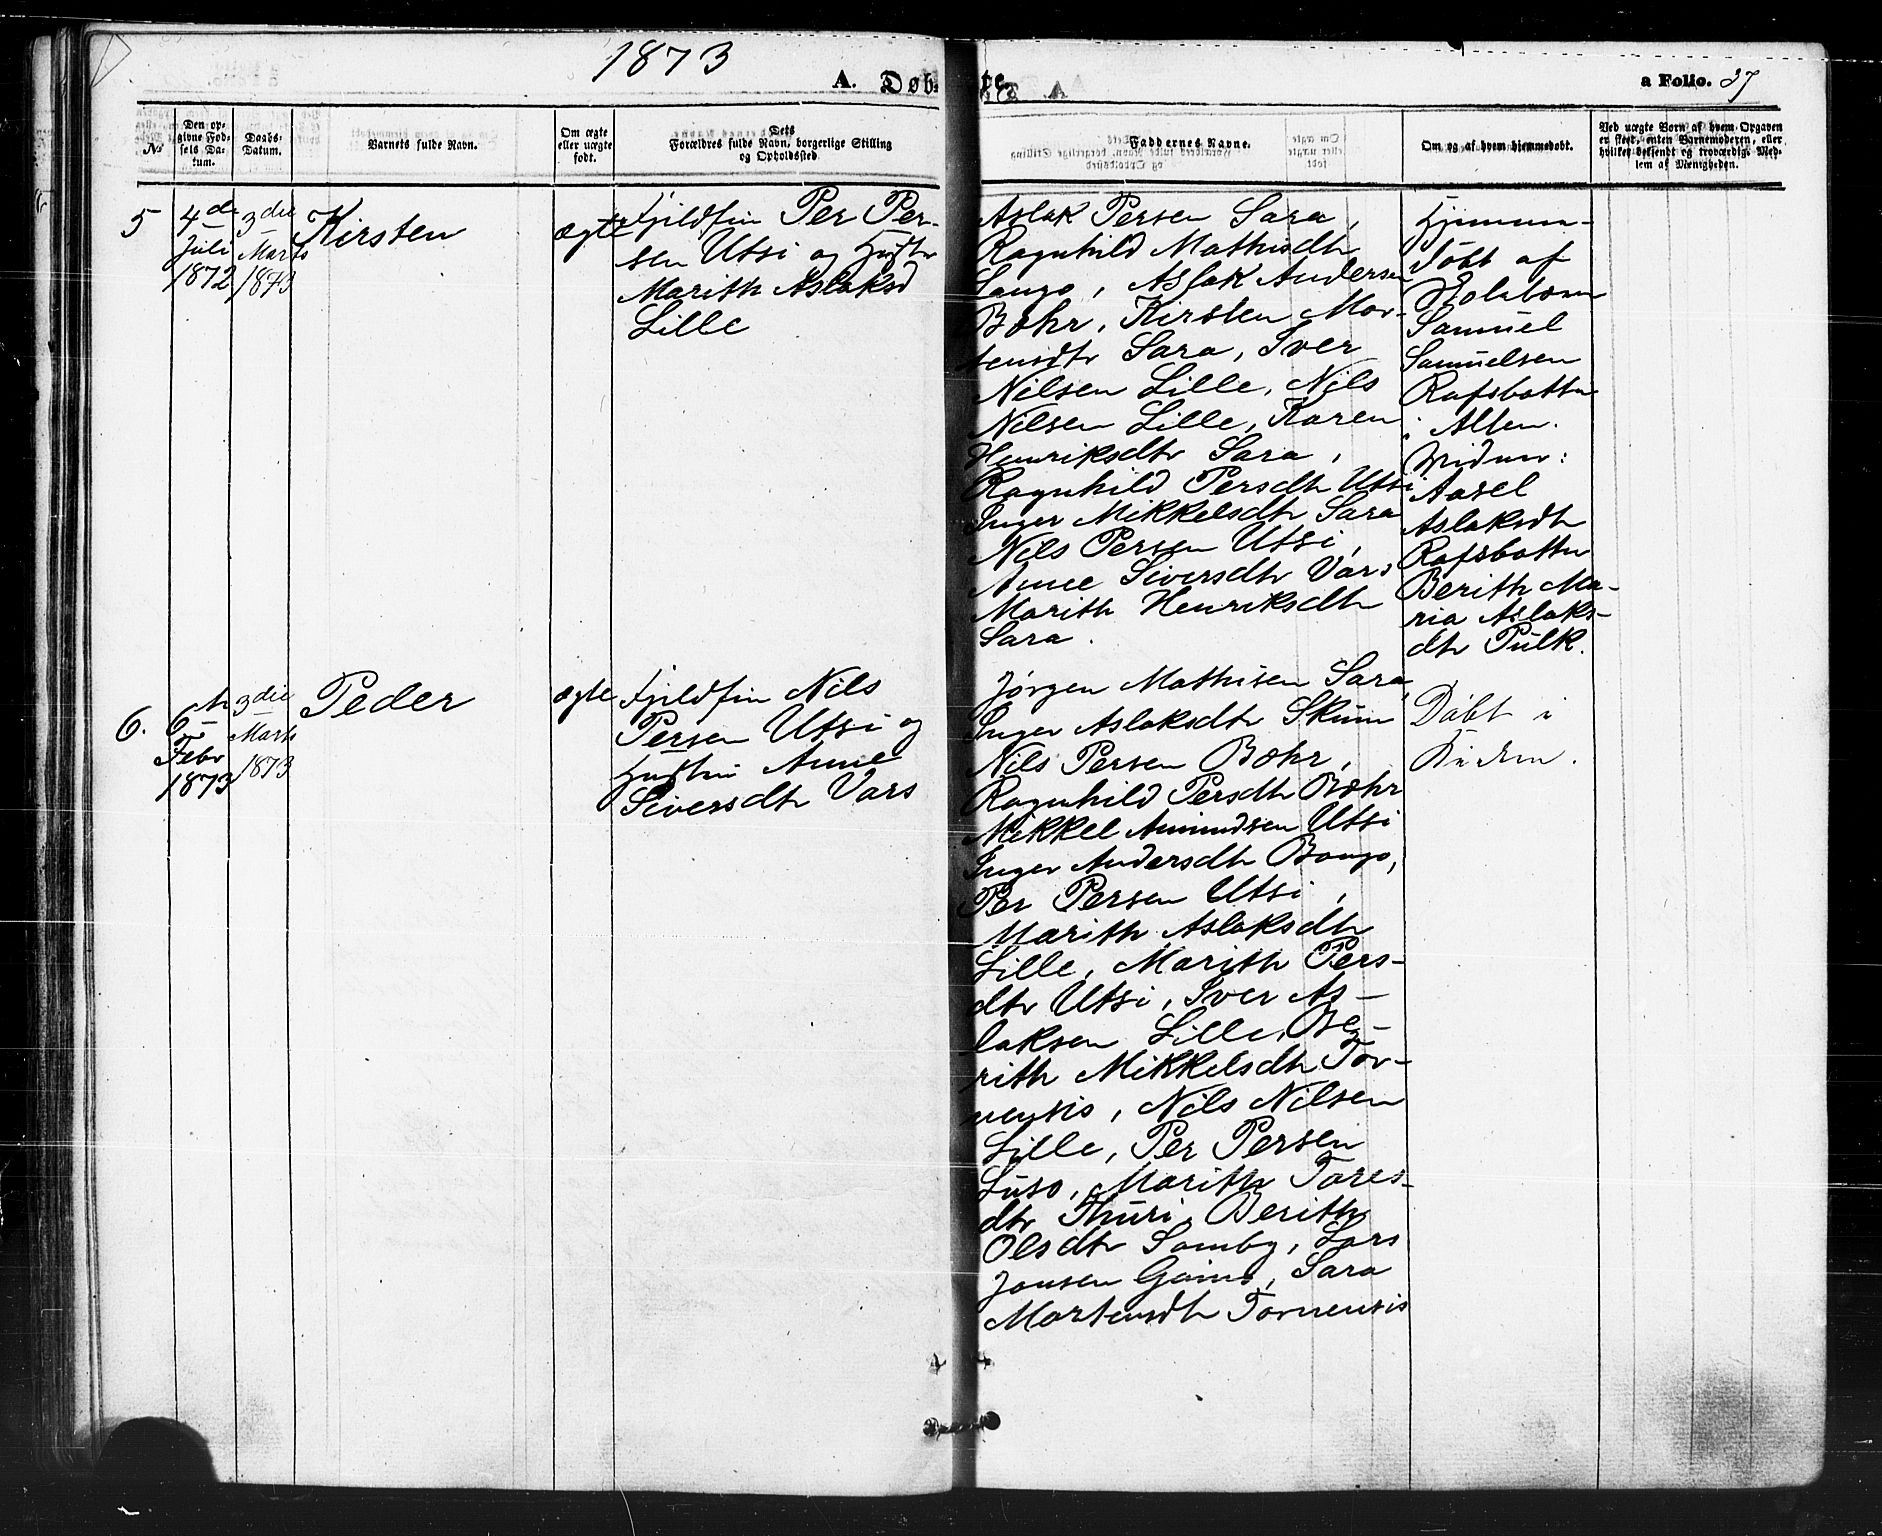 1873
A. Døbte.
a Folio. 37
No
Den opgivne Fødsels Datum.
Daabs-Datum.
Barnets fulde Navn.
Om ægte eller uægte født.
Dets Forældres fulde Navn, borgerlige Stilling og Opholdssted
Faddernes Navne.
Om og af hvem hjemmedøbt.
Ved uægte Børn af hvem Opgaven er skeet, enten Barnemoderen, eller hvilket bekjendt og troværdigt Medlem af Menigheden.
5
4de
Juli
1872
3die
Marts
1873
Kirsten
ægte
Fjeldfin Per Per-
sen Utsi og Hustr
Marith Aslaksd
Lille
Aslak Persen Sara,
Ragnhild Mathisdtr
Bongo, Aslak Andersen
Bæhr, Kirsten Mor-
tensdtr Sara, Iver
Nilsen Lille, Nils
Nilsen Lille, Karen
Henriksdtr Sara,
Ragnhild Persdtr Utsi
Inger Mikkelsdtr Sara
Nils Persen Utsi,
Anne Siversdtr Vars
Marith Henriksdtr
Sara.
Hjemme-
døbt af
Samuel
Samuelsen
Rafsbotten
i Alten.
Vidner:
Aasel
Aslaksdtr
Rafsbotten
Berith Ma-
ria Aslaks-
dtr Pulk.
6.
6te
Febr
1873
3die
Marts
1873
Peder
ægte
Fjeldfin Nils
Persen Utsi og
Hustru Anne
Siversdtr Vars
Jørgen Mathisen Sara,
Inger Aslaksdtr Skum
Nils Persen Bæhr,
Ragnhild Persdtr Bæhr
Mikkel Amundsen Utsi
Inger Andersdtr Bongo,
Per Persen Utsi,
Marith Aslaksdtr
Lille, Marith Pers-
dtr Utsi, Iver As-
laksen Lille, Be-
rith Mikkelsdtr Tor-
nensis, Nils Nilsen
Lille, Per Persen
Luso, Marith Tores-
dtr Thuri, Berith
Olsdtr Somby, Lars
Jonsen Gaino, Sara
Mortensdtr Tornensis
Døbt i
Kirken.